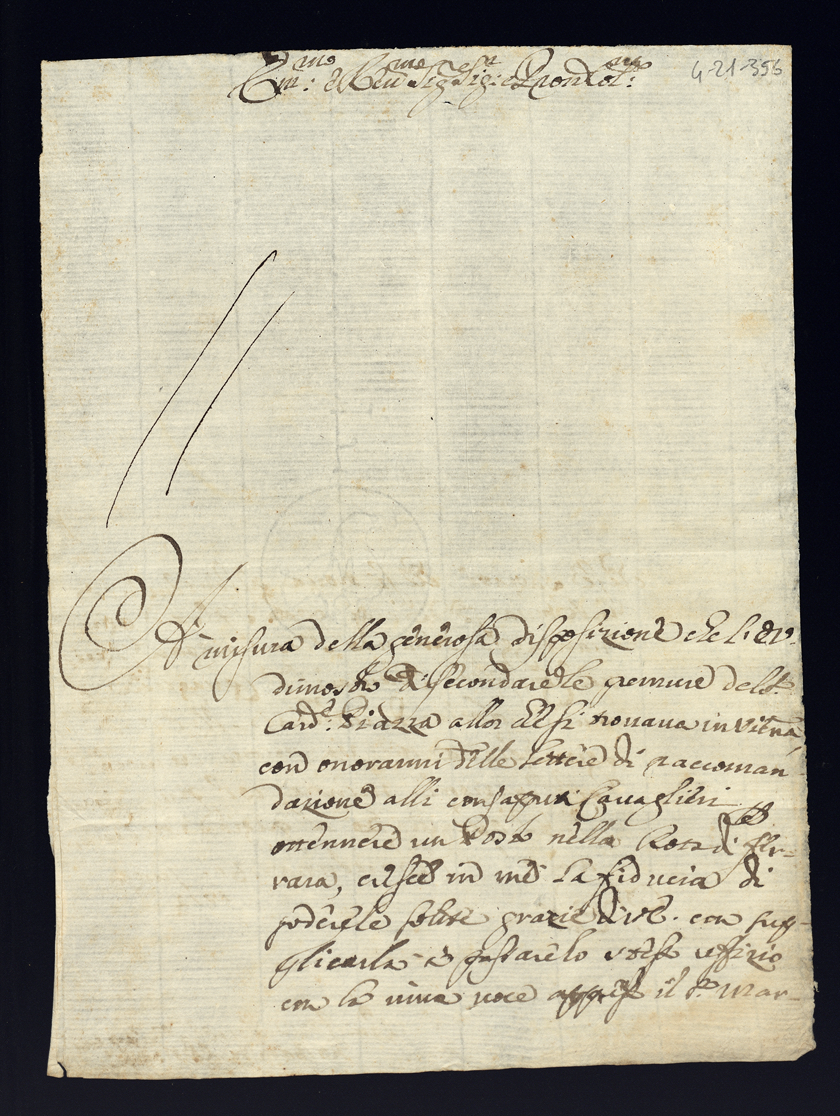 Em:mo e Rev:mo Sig. Sig: e Pron Col:mo
4-21-356
A misura della generosa disposizione che l'Ev.
dimostrò di secondare le premure dell'
Card: Piazza allor che si trovava in vita
con onorarmi delle lettere di raccoman
dazione alli Cavaglieri per
ottenere un Posto nella Rota di Fer-
rara, cresce in me la fiducia di
godere le solite grazie di VE. con sup-
plicarla a passare lo stesso uffizio
con la viva voce appresso il Sr. Mar-